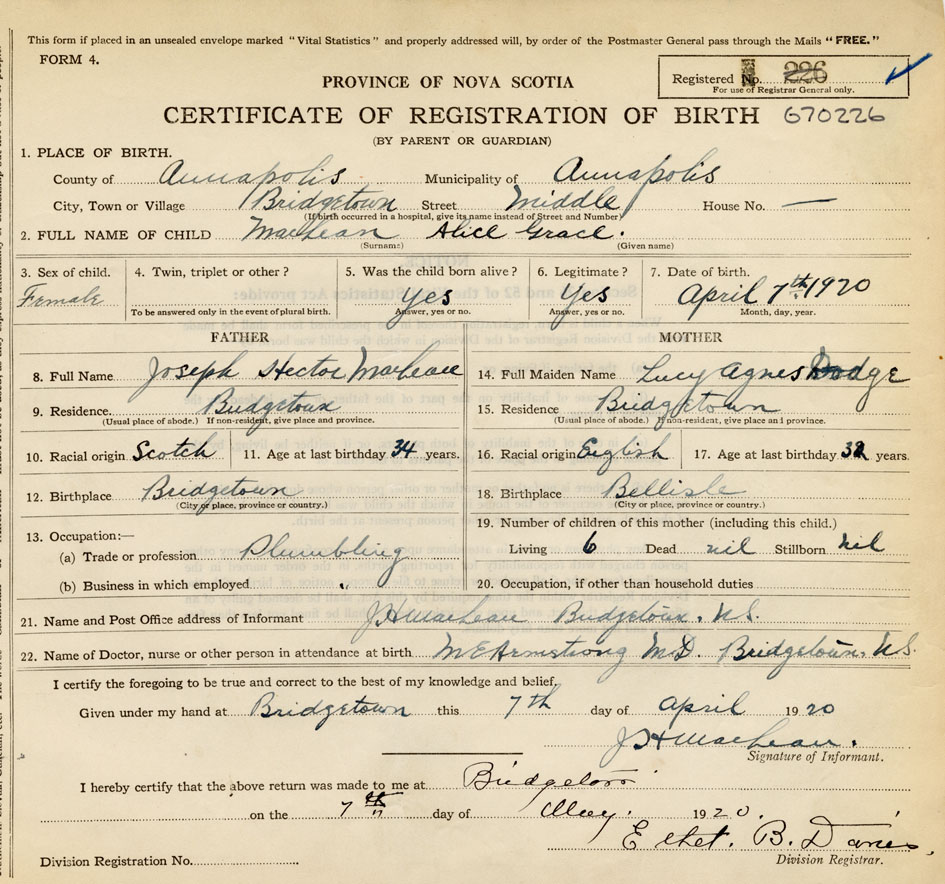 This form if placed in an unsealed envelope marked "Vital Statistics" and properly addressed will, by order of the Postmaster General pass through the Mails "FREE."
FORM 4.
Registered No. 226
For use of Registrar General only.
PROVINCE OF NOVA SCOTIA
CERTIFICATE OF REGISTRATION OF BIRTH 670226
(BY PARENT OR GUARDIAN)
1. PLACE OF BIRTH.
County of Annapolis Municipality of Annapolis
City, Town or Village Bridgetown Street Middle House No. —
(If birth occurred in a hospital, give its name instead of Street and Number)
2. FULL NAME OF CHILD MacLean Alice Grace.
(Surname) (Given name)
3. Sex of child. 4. Twin, triplet or other? 5. Was the child born alive? 6. Legitimate? 7. Date of birth.
Female Yes Yes April 7th 1920
To be answered only in the event of plural birth. Answer, yes or no. Answer, yes or no. Month, day, year.
FATHER MOTHER
8. Full Name Joseph Hector MacLean 14. Full Maiden Name Lucy Agnes Dodge
9. Residence. Bridgetown 15. Residence Bridgetown
(Usual place of abode.) If non-resident, give place and province. (Usual place of abode.) If non-resident, give place and province.
10. Racial origin Scotch 11. Age at last birthday 34 years. 16. Racial origin English 17. Age at last birthday 32 years.
12. Birthplace Bridgetown 18. Birthplace Bellisle
(City or place, province or country.) (City or place, province or country.)
13. Occupation:— 19. Number of children of this mother (including this child.)
(a) Trade or profession Plumbling Living 6 Dead nil Stillborn nil
(b) Business in which employed 20. Occupation, if other than household duties
21. Name and Post Office address of Informant J H MacLean Bridgetown. N.S.
22. Name of Doctor, nurse or other person in attendance at birth M E Armstrong M.D. Bridgetown. N.S.
I certify the foregoing to be true and correct to the best of my knowledge and belief.
Given under my hand at Bridgetown this 7th day of April 1920
J H MacLean.
Signature of Informant.
I hereby certify that the above return was made to me at Bridgetown
on the 7th day of May. 1920.
Ethel. B. Davies.
Division Registrar.
Division Registration No.